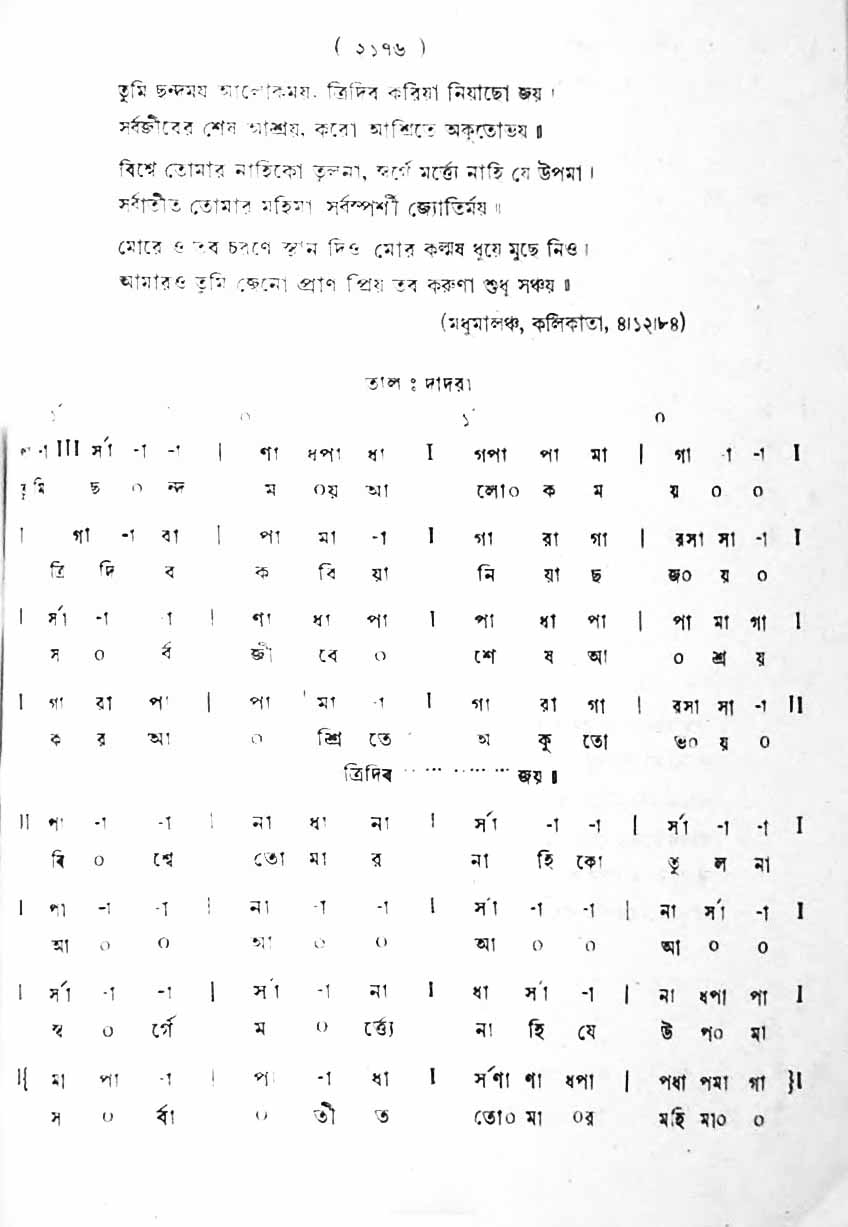 ( ২১৭৬ )
তুমি ছন্দময় আলোকময়, ত্রিদিব করিয়া নিয়াছো জয় ।
সর্বজীবের শেষ আশ্রয়, করো আশ্রিতে অকুতোভয় ॥
বিশ্বে তোমার নাহিকো তুলনা, স্বর্গে মর্ত্ত্যে নাহি যে উপমা ।
সর্বাতীত তোমার মহিমা সর্বস্পর্শী জ্যোতির্ময় ॥
মোরে ও তব চরণে স্থান দিও মোর কল্মষ ধুয়ে মুছে নিও ।
আমারও তুমি জেনো প্রাণ প্রিয় তব করুণা শুধু সঞ্চয় ॥
(মধুমালঞ্চ, কলিকাতা, ৪।১২।৮৪)
তাল ঃ দাদরা
১´ ০ ১´ ০
-া III র্সা -া -া | ণা ধপা ধা I গপা পা মা | গা -া -া I
তুমি ছ ০ ন্দ ম ০য় আ লো০ ক ম য় ০ ০
I গা -া রা | পা মা -া I গা রা গা | রসা সা -া I
ত্রি দি ব ক রি য়া নি য়া ছ জ০ য় ০
I র্সা -া -া | ণা ধা পা I পা ধা পা | পা মা গা I
স ০ র্ব জী বে ০ শে ষ আ ০ শ্র য়
I গা রা পা | পা মা -া I গা রা গা | রসা সা -া II
ক র আ ০ শ্রি তে অ কু তো ভ০ য় ০
ত্রিদিব ............ জয় ॥
II পা -া -া | না ধা না I র্সা -া -া | র্সা -া -া I
বি ০ শ্বে তো মা র না হি কো তু ল না
I পা -া -া | না -া -া I র্সা -া -া | না র্সা -া I
আ ০ ০ আ ০ ০ আ ০ ০ আ ০ ০
I র্সা -া -া | র্সা -া না I ধা র্সা -া | না ধপা পা I
স্ব ০ র্গে ম ০ র্ত্ত্যে না হি যে উ প০ মা
II{ মা পা -া | পা -া ধা I র্সণা ণা ধপা | পধা পমা গা }I
স ০ র্বা ০ তী ত তো০ মা ০র মহি মা০ ০